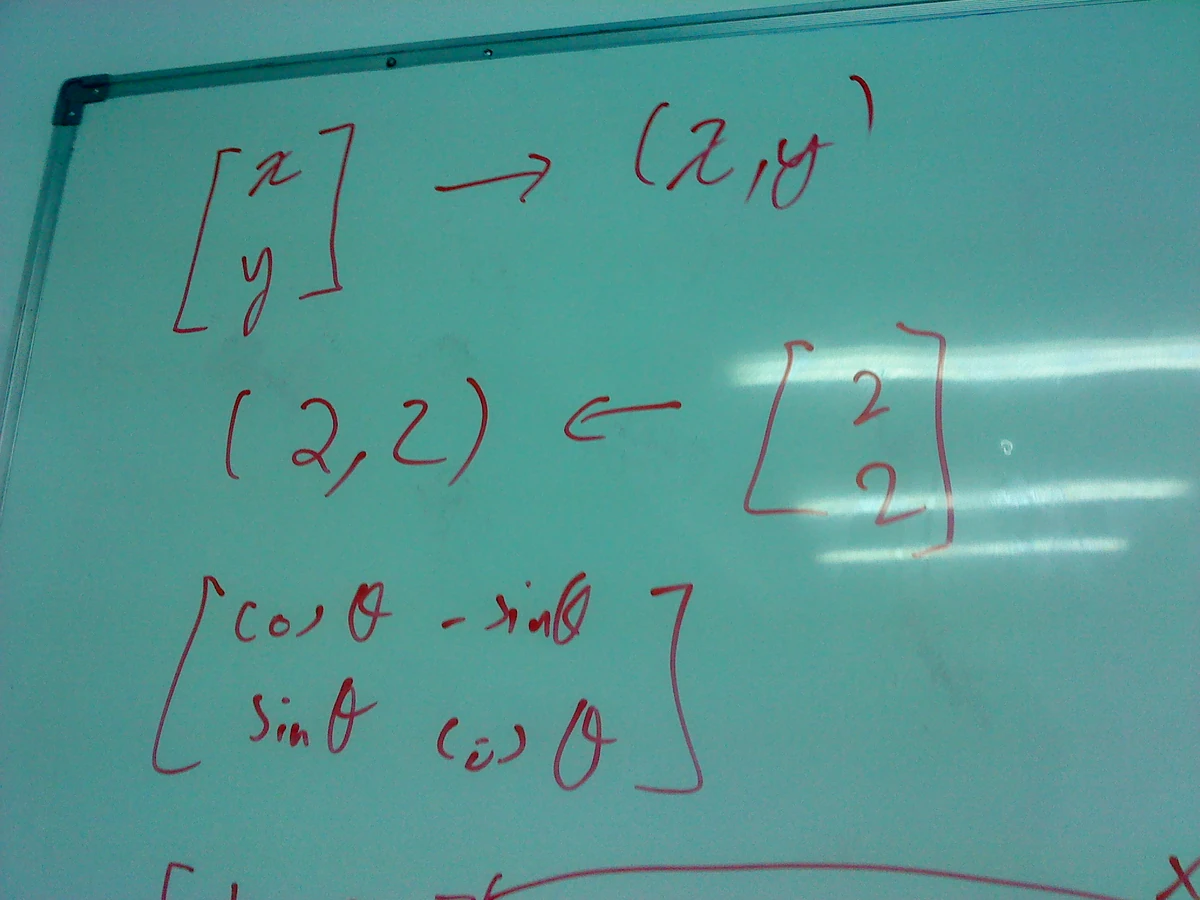 [x y] → (x, y)
(2, 2) ← [2 2]
[cos θ -sin θ
sin θ cos θ]
x